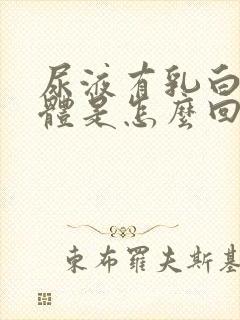 尿液有乳白
體是怎麼回
東布羅夫斯基